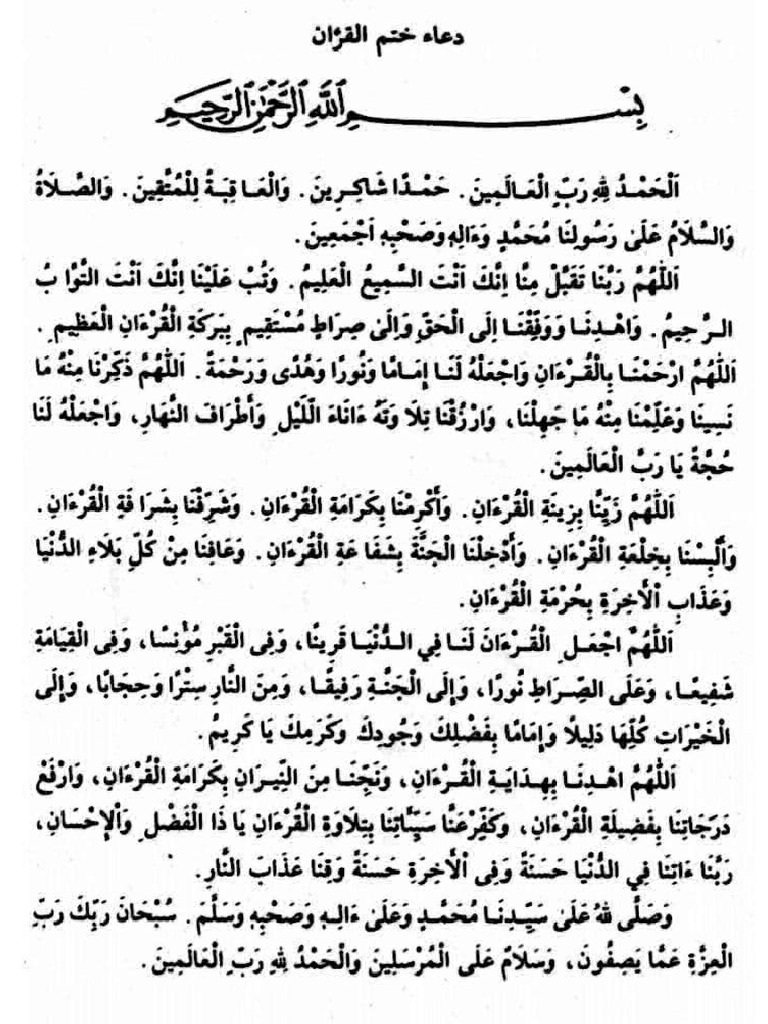 دعاء ختم القرآن
بِسْمِ ٱللَّهِ ٱلرَّحْمَٰنِ ٱلرَّحِيمِ
اَلْحَمْدُ لِلّٰهِ رَبِّ الْعَالَمِينَ. حَمْدًا شَاكِرِينَ. وَالْعَاقِبَةُ لِلْمُتَّقِينَ. وَالصَّلَاةُ
وَالسَّلَامُ عَلَىٰ رَسُولِنَا مُحَمَّدٍ وَءَالِهِ وَصَحْبِهِ اَجْمَعِينَ.
اَللّٰهُمَّ رَبَّنَا تَقَبَّلْ مِنَّا اِنَّكَ اَنْتَ السَّمِيعُ الْعَلِيمُ. وَتُبْ عَلَيْنَا اِنَّكَ اَنْتَ التَّوَّابُ
الرَّحِيمُ. وَاهْدِنَا وَوَفِّقْنَا اِلَى الْحَقِّ وَاِلَىٰ صِرَاطٍ مُسْتَقِيمٍ بِبَرَكَةِ الْقُرْءَانِ الْعَظِيمِ.
اَللّٰهُمَّ ارْحَمْنَا بِالْقُرْءَانِ وَاجْعَلْهُ لَنَا اِمَامًا وَنُورًا وَهُدًى وَرَحْمَةً. اَللّٰهُمَّ ذَكِّرْنَا مِنْهُ مَا
نَسِينَا وَعَلِّمْنَا مِنْهُ مَا جَهِلْنَا، وَارْزُقْنَا تِلَاوَتَهُ ءَانَاءَ الَّلَيْلِ وَأَطْرَافَ النَّهَارِ، وَاجْعَلْهُ لَنَا
حُجَّةً يَا رَبَّ الْعَالَمِينَ.
اَللّٰهُمَّ زَيِّنَّا بِزِينَةِ الْقُرْءَانِ. وَأَكْرِمْنَا بِكَرَامَةِ الْقُرْءَانِ. وَشَرِّفْنَا بِشَرَافَةِ الْقُرْءَانِ.
وَأَلْبِسْنَا بِخِلْعَةِ الْقُرْءَانِ. وَأَدْخِلْنَا الْجَنَّةَ بِشَفَاعَةِ الْقُرْءَانِ. وَعَافِنَا مِنْ كُلِّ بَلَاءِ الدُّنْيَا
وَعَذَابِ الْأَخِرَةِ بِحُرْمَةِ الْقُرْءَانِ.
اَللّٰهُمَّ اجْعَلِ الْقُرْءَانَ لَنَا فِي الدُّنْيَا قَرِينًا، وَفِى الْقَبْرِ مُؤْنِسًا، وَفِى الْقِيَامَةِ
شَفِيعًا، وَعَلَى الصِّرَاطِ نُورًا، وَإِلَى الْجَنَّةِ رَفِيقًا، وَمِنَ النَّارِ سِتْرًا وَحِجَابًا، وَإِلَى
الْخَيْرَاتِ كُلِّهَا دَلِيلًا وَإِمَامًا بِفَضْلِكَ وَجُودِكَ وَكَرَمِكَ يَا كَرِيمُ.
اَللّٰهُمَّ اهْدِنَا بِهِدَايَةِ الْقُرْءَانِ، وَنَجِّنَا مِنَ النِّيرَانِ بِكَرَامَةِ الْقُرْءَانِ، وَارْفَعْ
دَرَجَاتِنَا بِفَضِيلَةِ الْقُرْءَانِ، وَكَفِّرْعَنَّا سَيِّئَاتِنَا بِتِلَاوَةِ الْقُرْءَانِ يَا ذَا الْفَضْلِ وَالْاِحْسَانِ،
رَبَّنَا ءَاتِنَا فِي الدُّنْيَا حَسَنَةً وَفِى الْأَخِرَةِ حَسَنَةً وَقِنَا عَذَابَ النَّارِ.
وَصَلَّى لِلّٰهُ عَلَىٰ سَيِّدِنَا مُحَمَّدٍ وَعَلَىٰ ءَالِهِ وَصَحْبِهِ وَسَلَّمَ. سُبْحَانَ رَبِّكَ رَبِّ
الْعِزَّةِ عَمَّا يَصِفُونَ، وَسَلَامٌ عَلَى الْمُرْسَلِينَ وَالْحَمْدُ لِلّٰهِ رَبِّ الْعَالَمِينَ.